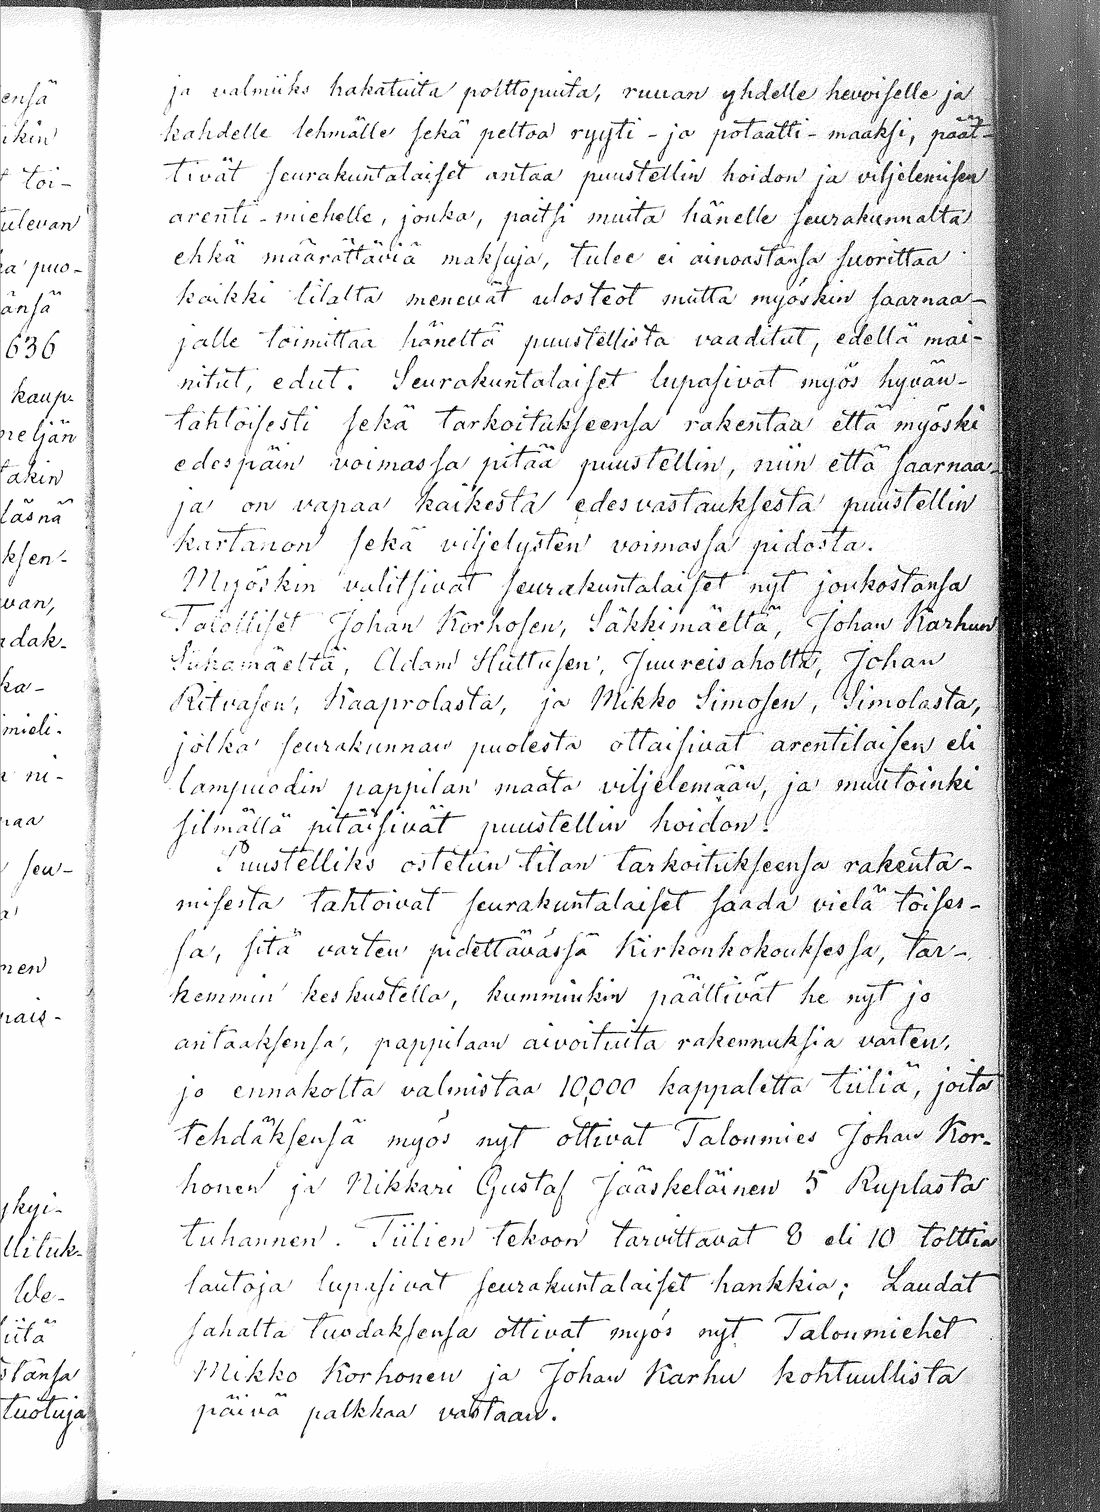 ja valmiiks hakatuita polttopuita, ruuan yhdelle hevoiselle ja
kahdelle lehmälle sekä peltoa ryyti-ja potaatti-maaksi, päät-
tivät seurakuntalaiset antaa puustellin hoidon ja viljelemisen
arenti-miehelle, jonka, paitsi muita hänelle seurakunnalta
ehkä määrättäviä maksuja, tulee ei ainoastansa suorittaa
kaikki tilalta menevät ulosteot mutta myöskin saarnaa-
jalle toimittaa häneltä puustellista vaaditut, edellä mai-
nitut, edut. Seurakuntalaiset lupasivat myös hyvän-
tahtoisesti sekä tarkoitukseensa rakentaa että myöski
edespäin voimassa pitää puustellin, niin että saarnaa-
ja on vapaa kaikesta edesvastauksesta puustellin
kartanon sekä viljelysten voimassa pidosta.
Myöskin valitsivat seurakuntalaiset nyt joukostansa
Talolliset Johan Korhosen, Säkkimäeltä, Johan Karhun
Adam Huttusen, Juureisaholta, Johan
Ritvasen, Kaaprolasta, ja Mikko Simosen, Simolasta,
jotka seurakunnan puolesta ottaisivat arentilaisen eli
lampuodin pappilan maata viljelemään, ja muutoinki
silmällä pitäisivät puustellin hoidon.
Puustelliks ostetun tilan tarkoitukseensa rakenta-
misesta tahtoivat seurakuntalaiset saada vielä toises-
sa, sitä varten pidettävässä Kirkonkokouksessa, tar-
kemmin keskustella, kumminkin päättivät he nyt jo
antaaksensa, pappilaan aivoituita rakennuksia varten,
jo ennakolta valmistaa 10,000 kappaletta tiiliä, joita
tehdäksensä myös nyt ottivat Talonmies Johan Kor-
honen ja Nikkari Gustaf Jääskeläinen 5 Ruplasta
tuhannen. Tiilien tekoon tarvittavat 8 eli 10 tolttia
lautoja lupasivat seurakuntalaiset hankkia; Laudat
sahalta tuodaksensa ottivat myös nyt Talonmiehet
Mikko Korhonen ja Johan Karhu kohtuullista
päivä palkkaa vastaan.